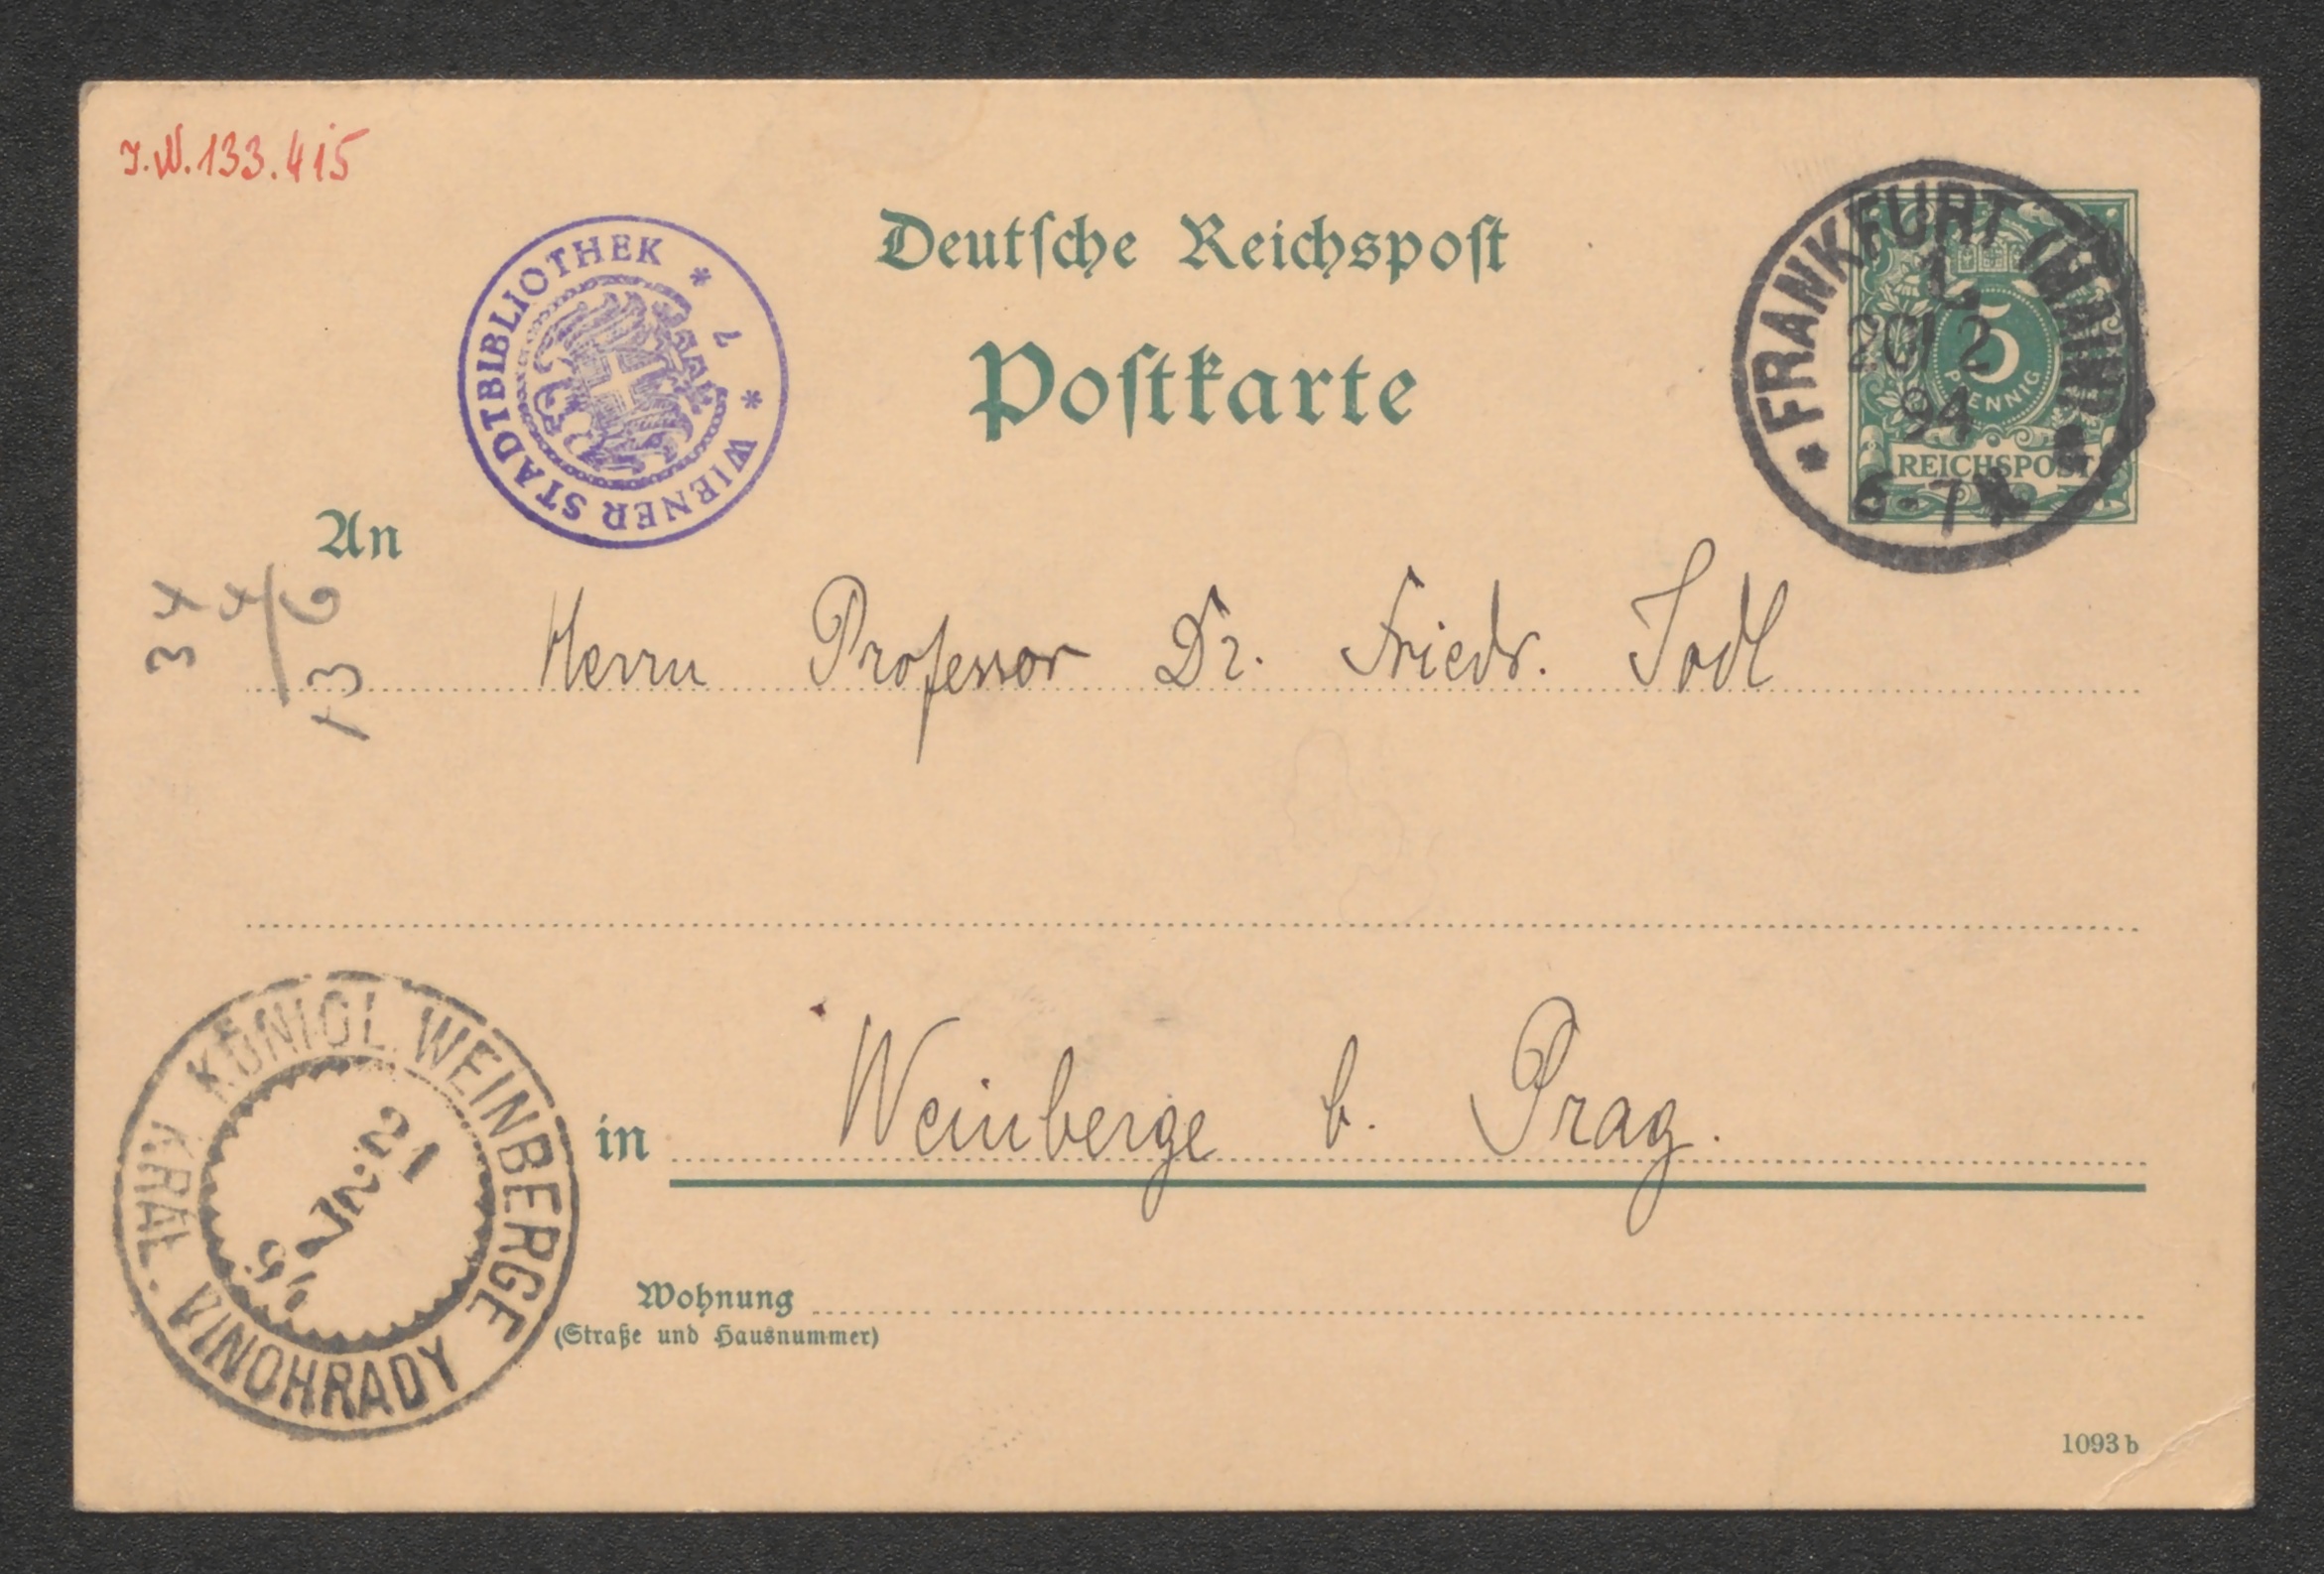 I.N. 133.415
* 7 * WIENER STADTBIBLIOTHEK
Deutſche Reichspoſt
Poſtkarte
FRANKFURT (MAIN)
1.
20/2
94
6-7 N.
5
PFENNIG
REICHSPOST
An
Herrn Professor Dr. Friedr. Jodl
KÖNIGL. WEINBERGE
KRÁL. VINOHRADY
21
2
94
in Weinberge b. Prag.
Wohnung
(Straße und Hausnummer)
1093 b